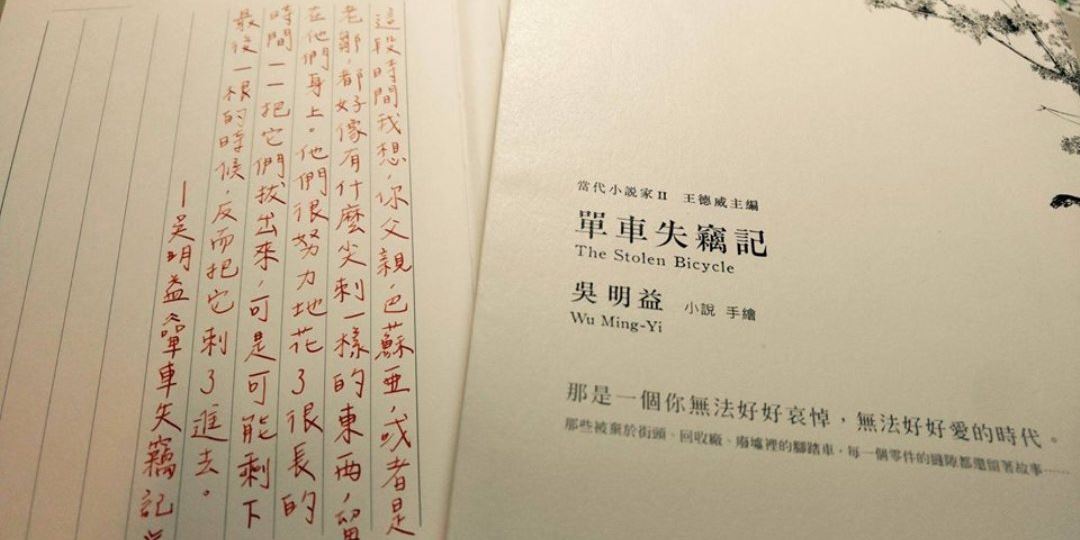 這段時間我想,你父親,巴蘇亞,或者是
老鄒,都好像有什麼尖刺一樣的東西,留
在他們身上。他們很努力地花了很長的
時間一一把它們拔出來,可是可能剩下
最後一根的時候,反而把它刺了進去。
—吳明益《單車失竊記》
當代小說家II 王德威主編
單車失竊記
The Stolen Bicycle
吳明益 小說 手繪
Wu Ming-Yi
那是一個你無法好好哀悼,無法好好愛的時代。
那些被棄於街頭、回收廠、廢墟裡的腳踏車,每一個零件的縫隙都還留著故事……